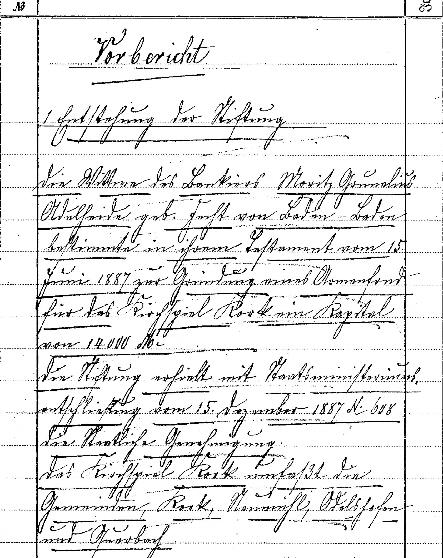 №
Vorbericht
1 Entstehung der Stiftung
Die Wittwe des Bankiers Moritz Grunelius
Adelheide geb. Hecht von Baden-Baden
bestimmte in ihrem Testament vom 15.
Juni 1887 zur Gründung eines Armenfond
für das Kirchspiel Kork ein Kapital
von 14000 M.
Die Stiftung erhielt mit Staatsministeriums-
entschließung vom 15. Dezember 1887 N. 608
die Staatliche Genehmigung.
Das Kirchspiel Kork umfaßt die
Gemeinden, Kork, Neumühl, Odelshofen
und Querbach